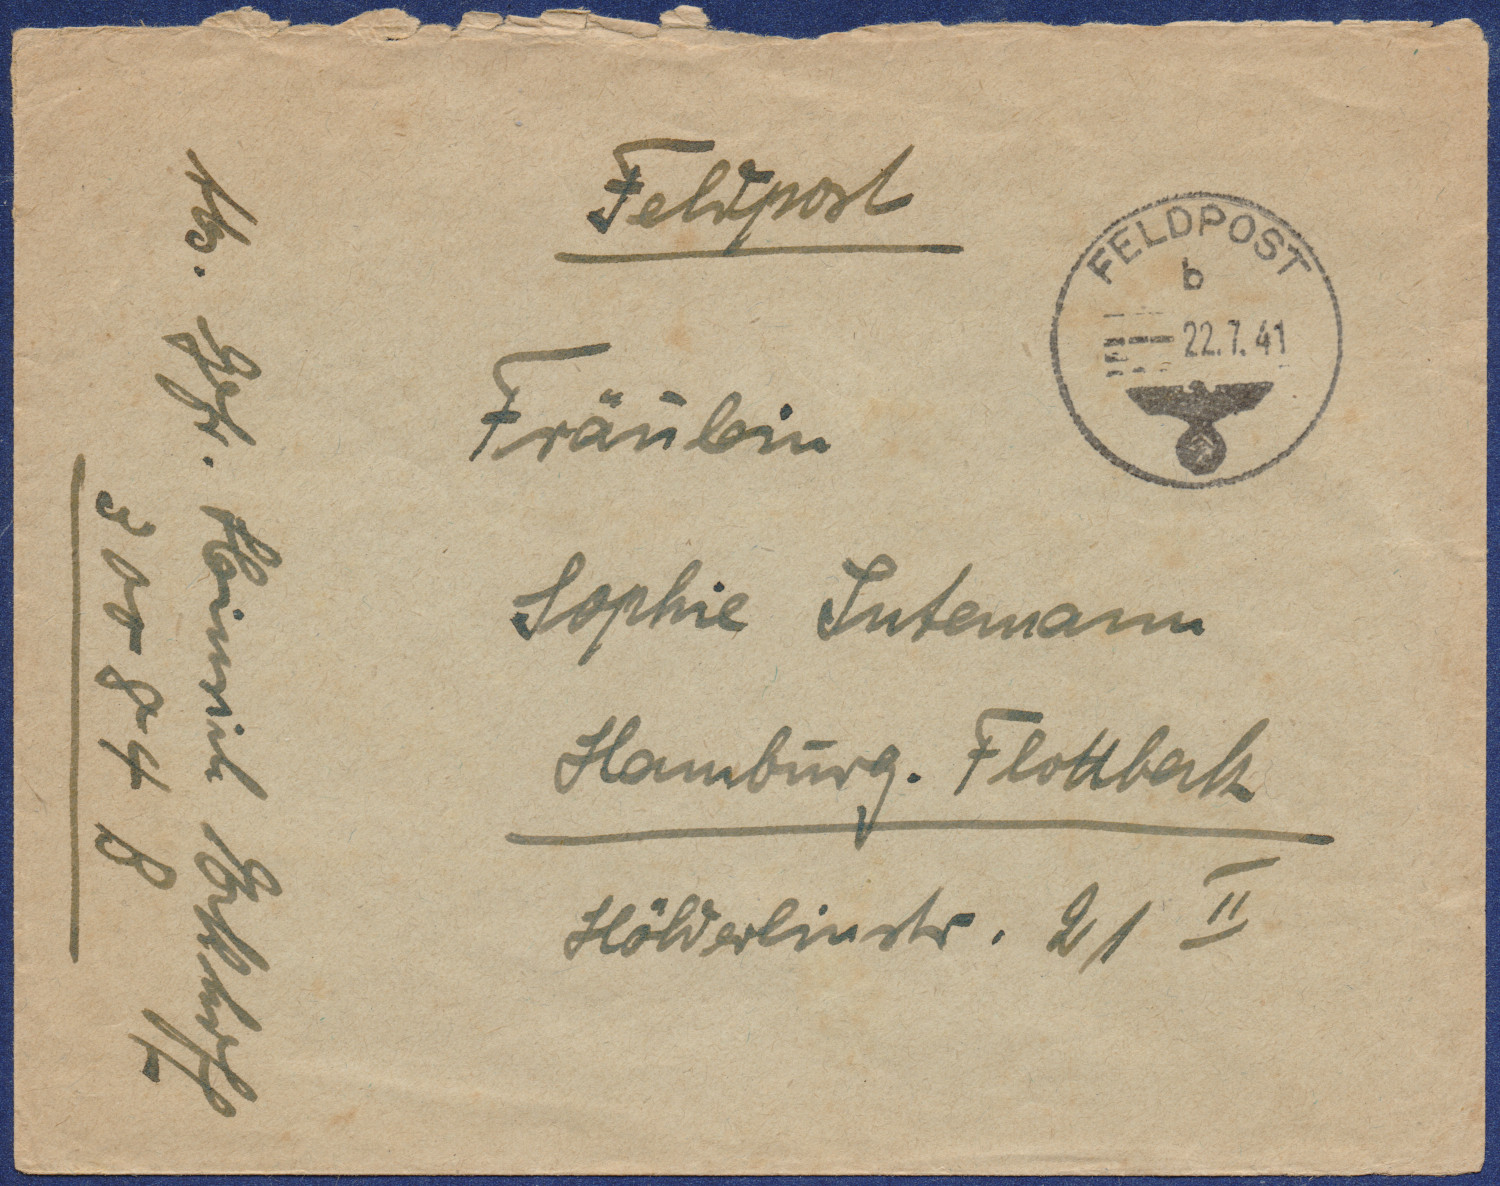 Feldpost
FELDPOST
b
22.7.41
Fräulein
Sophie Intemann
Hamburg. Flottbek
Hölderlinstr. 21 II
Abs. Gefr. Heinrich
30084 B